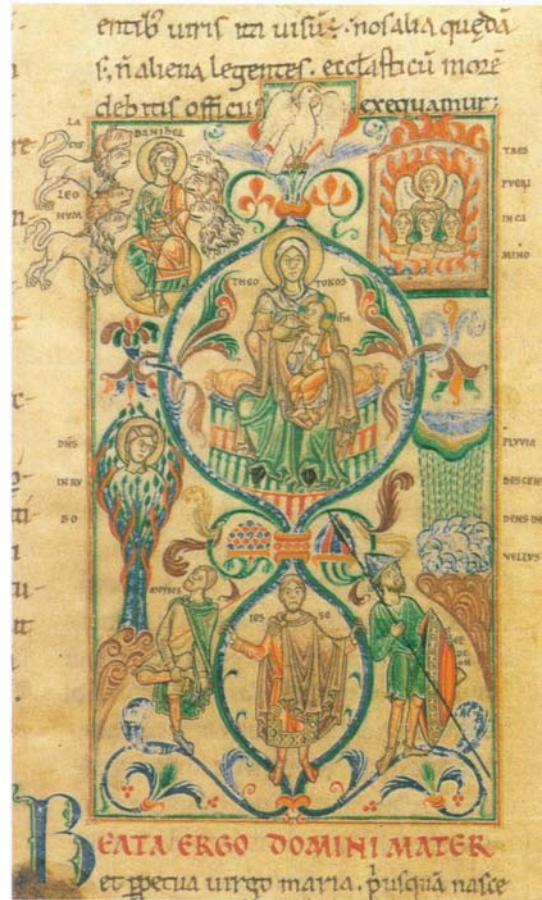 entib' uiris ita uisū; nos alia quędā
s; n̄ aliena legentes. ecclasticū morē
debitis officiis exequamur;
LA
CUS
LEO
NUM
DANIHEL
TRES
PVERI
IN CA
MINO
THEO TOKOS
DN̄S
IN RV
BO
PLVVIA
DESCEN
DENS IN
VELLVS
MOYSES
IES SE
GE
DE
ON
BEATA ERGO DOMINI MATER
et ꝑpetua uirgo maria. p̓usquā nasce